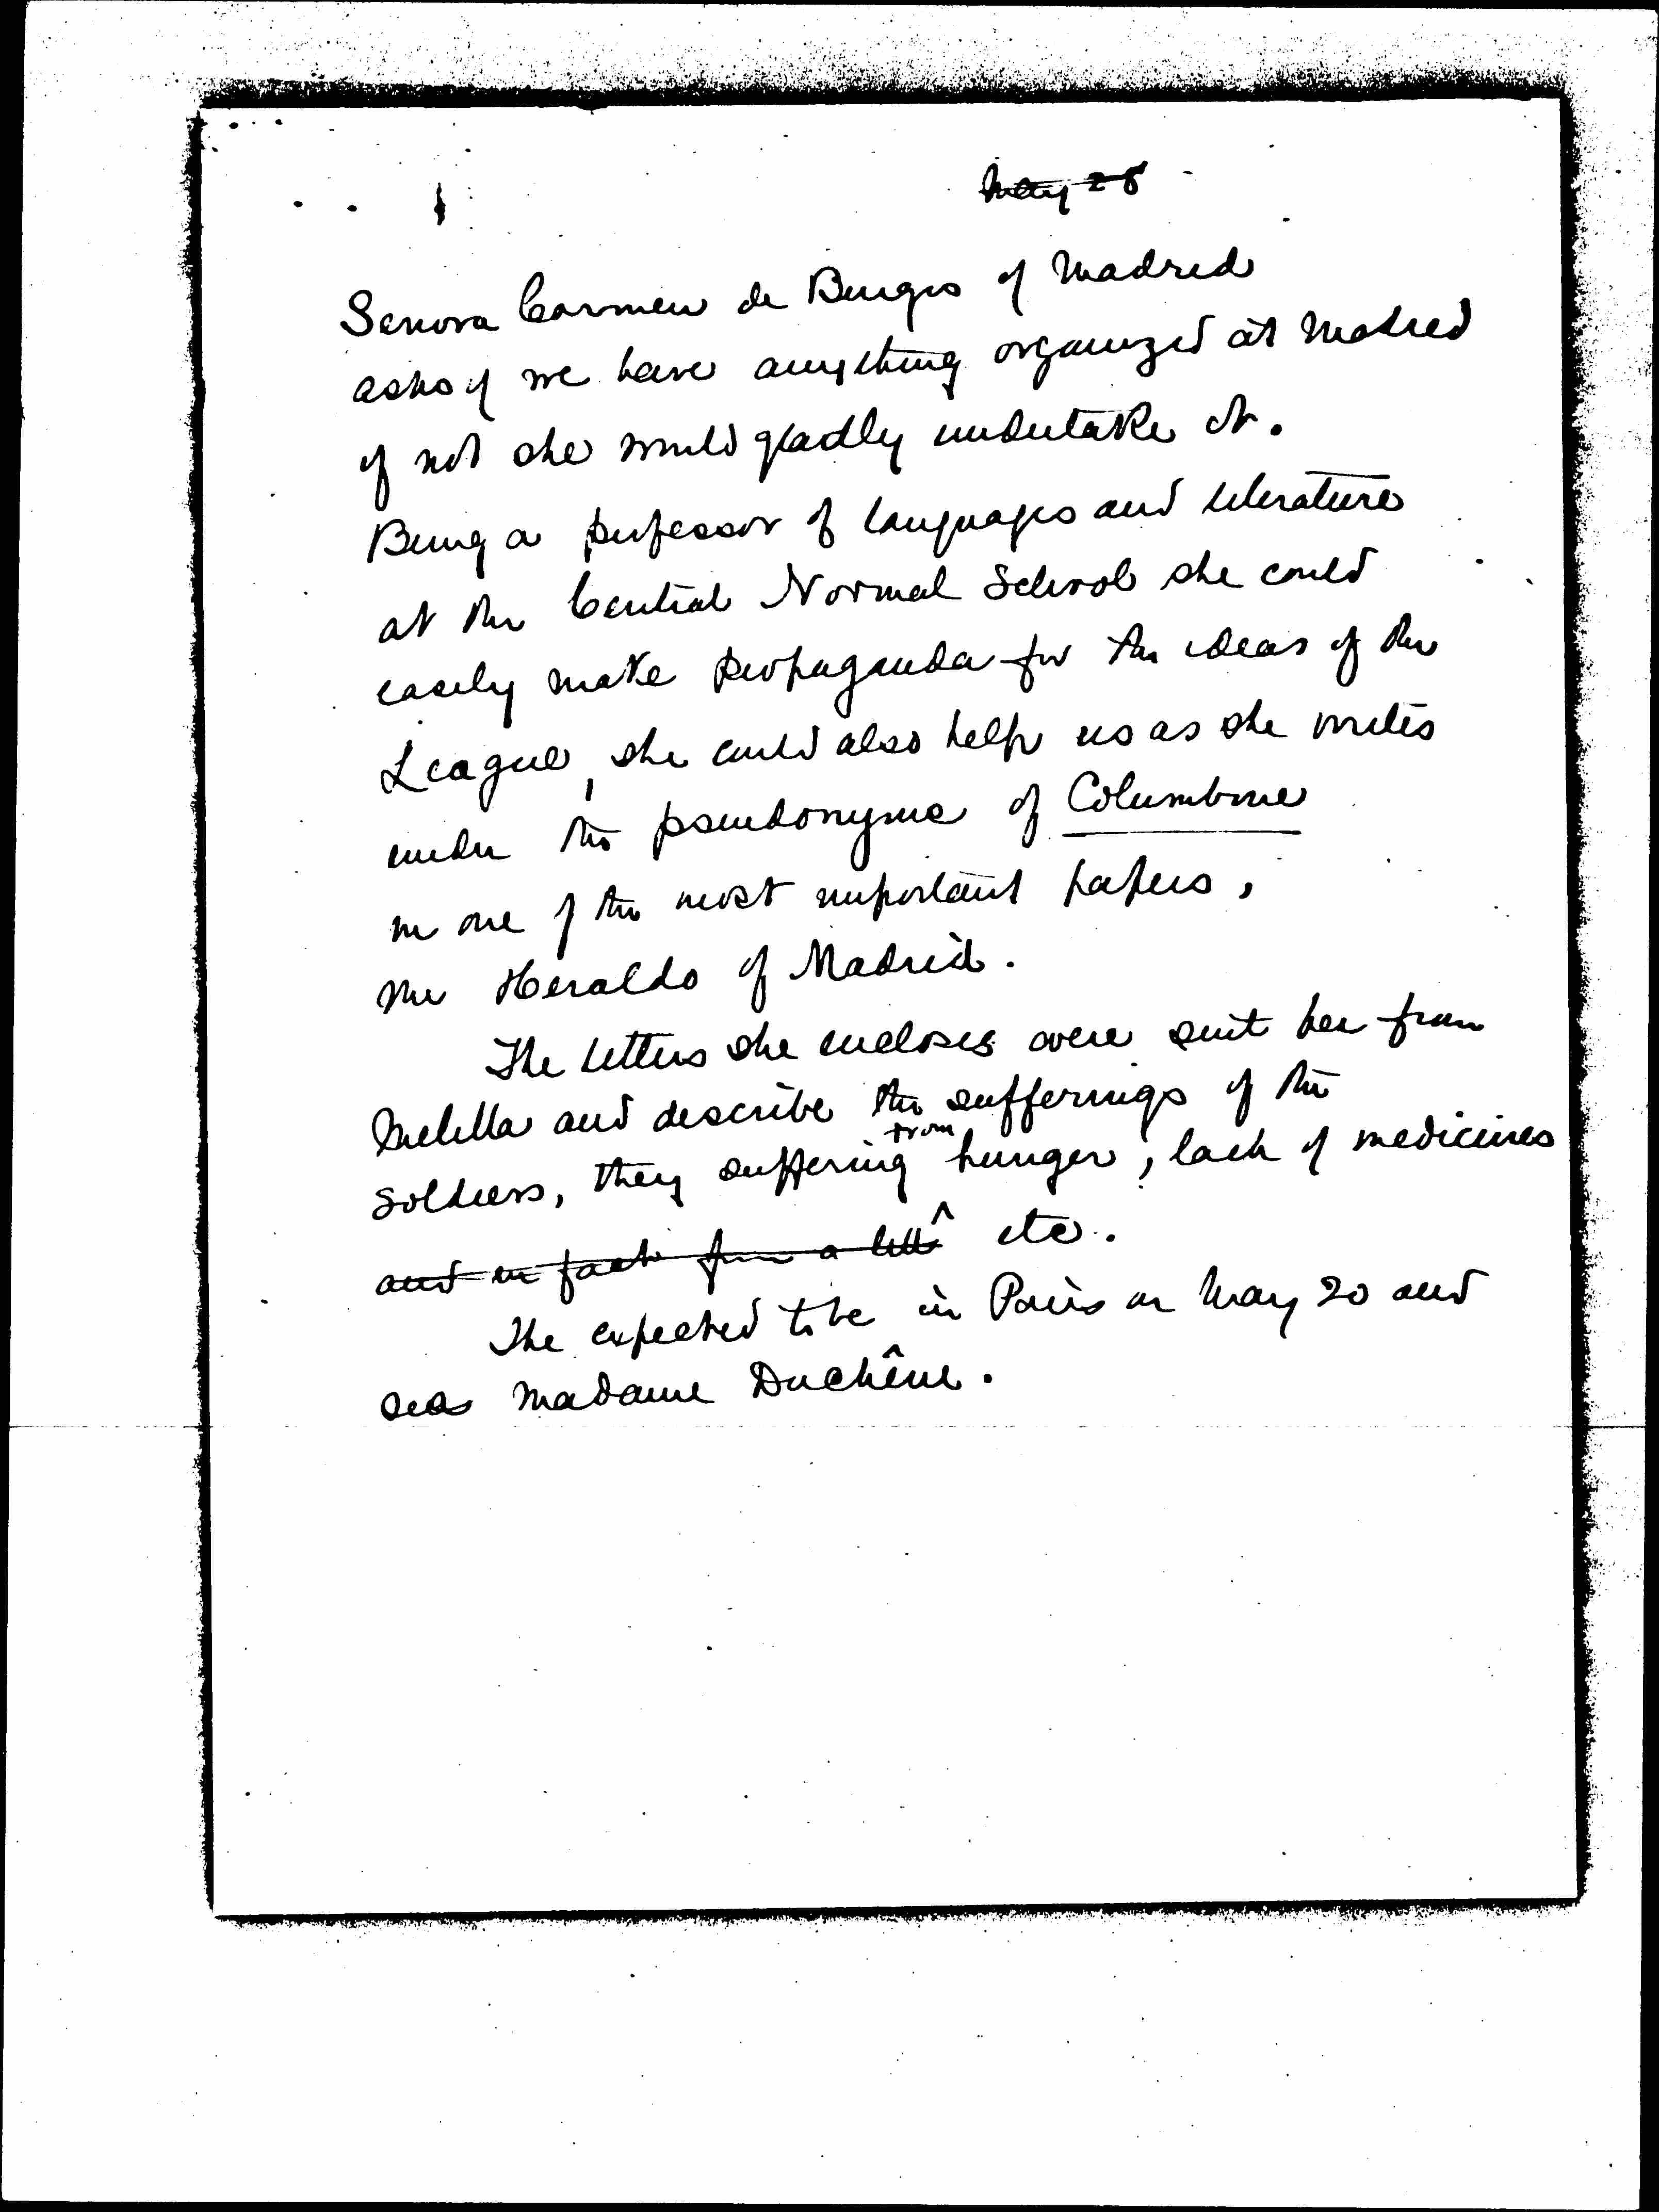 May 28
Senora Carmen de Burgos of Madrid
asks if we have anything organized at Madrid
if not she would gladly undertake it.
Being a professor of languages and literature
at the Central Normal School she could
easily make propaganda for the ideas of the
League, she could also help us as she writes
under the pseudonyme of Columbine
in one of the most important papers,
the Heraldo of Madrid.
The letters she encloses were sent her from
Melilla and describe the sufferings of the
soldiers, they suffering from hunger, lack of medicines
and in fact from a etc.
She expected to be in Paris on May 20 and
see Madame Duchêne.